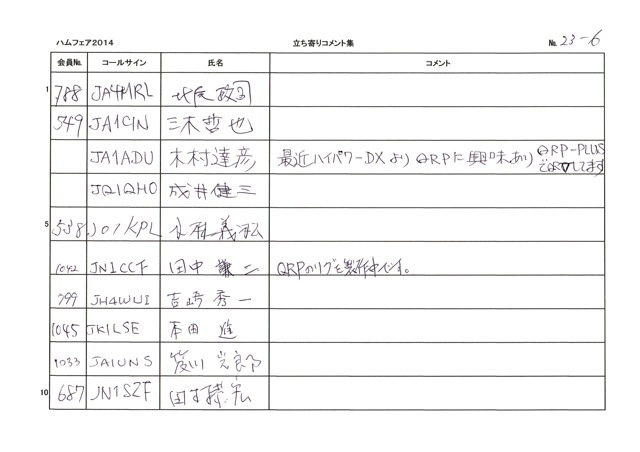 ハムフェア2014 立ち寄りコメント集 No. 23-6
会員No. コールサイン 氏名 コメント
1 788 JA4MRL 政司
549 JA1CIN 三木哲也
JA1ADU 木村達彦 最近ハイパワーDXよりQRPに興味あり QRP-PLUS
でQRVしてます
JQ1QHO 成井健三
5 538 JO1KPL 義弘
1042 JN1CCF 田中謙二 QRPのリグを製作中です。
799 JH4WUI 吉崎秀一
1045 JK1LSE 本田進
1033 JA1UNS 笈川光良郎
10 687 JN1SZF 田村